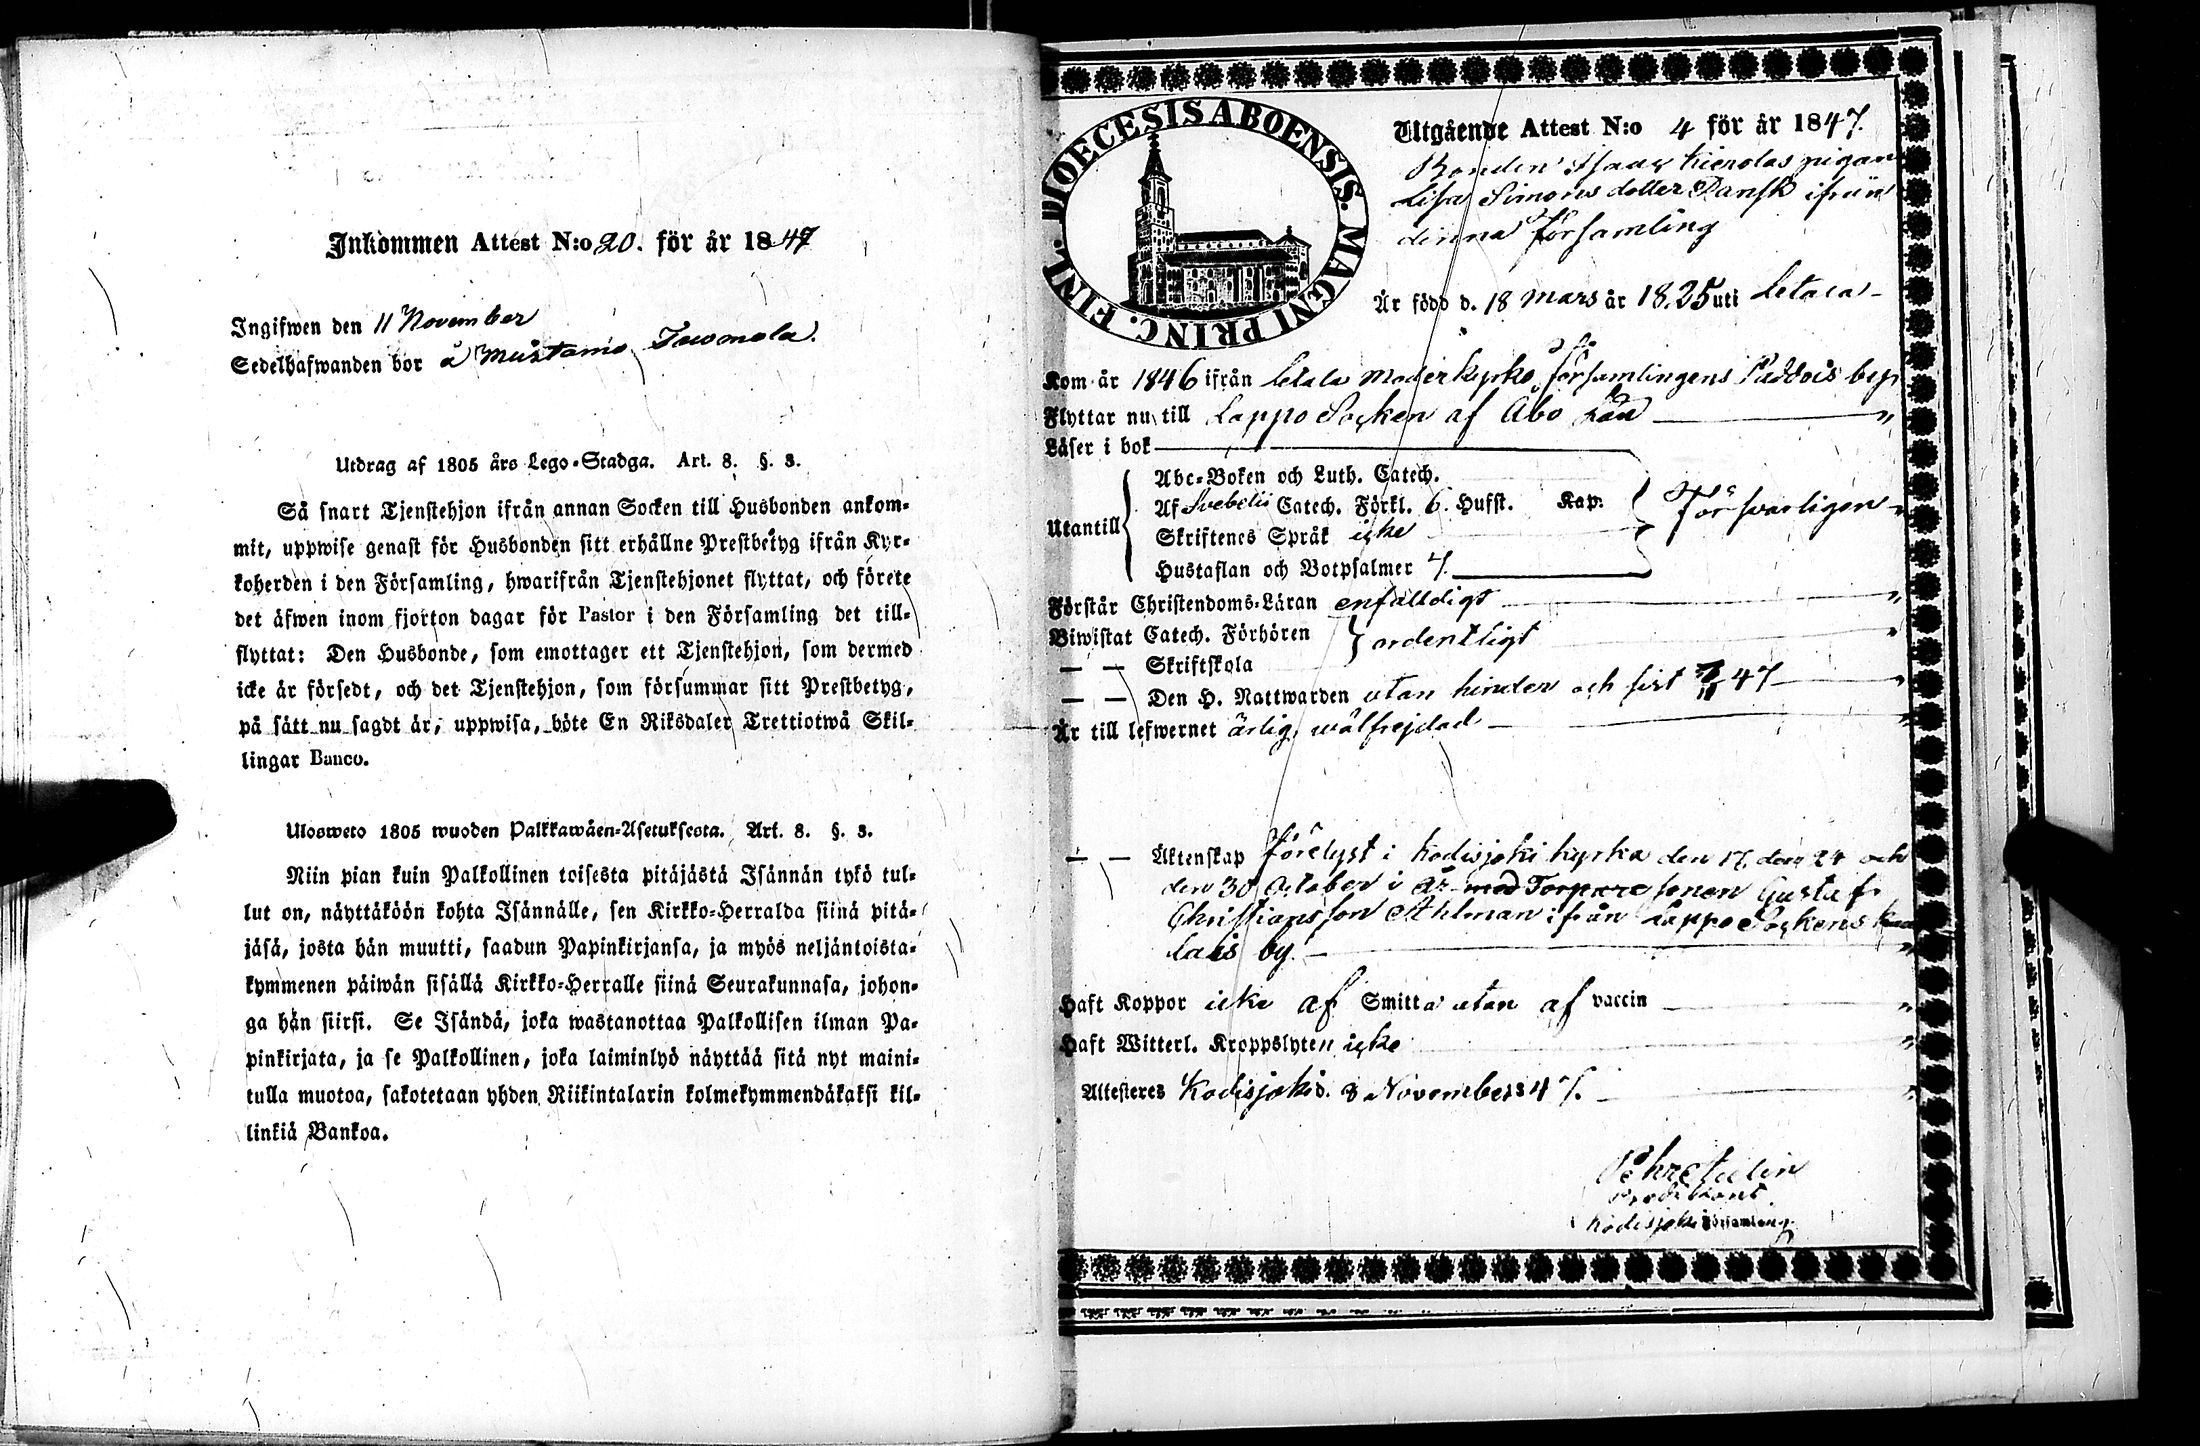 Inkommen Attest N:o 20. för år 1847
Ingifwen den 11 November
Sedelhafwanden bor å Mustamo
Utdrag af 1805 års Lego-Stadga. Art. 8. §. 3.
Så snart Tjenstehjon ifrån annan Socken till Husbonden ankom-
mit, uppwise genast för Husbonden sitt erhållne Prestbetyg ifrån Kyr-
koherden i den Församling, hwarifrån Tjenstehjonet flyttat, och förete
det äfwen inom fjorton dagar för Pastor i den Församling det till-
flyttat: Den Husbonde, som emottager ett Tjenstehjon, som dermed
icke är försedt, och det Tjenstehjon, som försummar sitt Prestbetyg,
på sätt nu sagdt är, uppwisa, böte En Riksdaler Trettiotwå Skil-
lingar Banco.
Ulosweto 1805 wuoden Palkkawäen-Asetuksesta. Art. 8. §. 3.
Niin pian kuin Palkollinen toisesta pitäjästä Isännän tykö tul-
lut on, näyttäköön kohta Isännälle, sen Kirkko-Herralda siinä pitä-
jäsä, josta hän muutti, saadun Papinkirjansa, ja myös neljäntoista-
kymmenen päiwän sisällä Kirkko-Herralle siinä Seurakunnasa, johon-
ga hän siirsi. Se Isändä, joka wastanottaa Palkollisen ilman Pa-
pinkirjata, ja se Palkollinen, joka laiminlyö näyttää sitä nyt maini-
tulla muotoa, sakotetaan yhden Riikintalarin kolmekymmendäkaksi kil-
linkiä Bankoa.
DIOECESIS ABOENSIS. MAGNI PRINC. FINL.
Utgående Attest N:o 4 för år 1847.
Bonden Isaac pigan
Lisa Simons dotter Dansk ifrån
denna församling
Är född d. 18 Mars år 1825 uti Letala
Kom år 1846 ifrån Letala Moderkyrko församlingens Puddois by
Flyttar nu till Lappo Socken af Åbo Län
Läser i bok
Utantill
Abc-Boken och Luth. Catech.
Af Svebelii Catech. Förkl. 6. Hufst. Kap.
Försvarligen
Skriftenes Språk icke
Hustaflan och Botpsalmer 7.
Förstår Christendoms-Läran enfalldigt
Biwistat Catech. Förhören
ordentligt
— — Skriftskola
— — Den H. Nattwarden utan hinder och sist 7/11 47
Är till lefwernet ärlig, wälfrejdad
— — Äktenskap förelyst i Kodisjoki kyrka den 17, den 24 och
den 30 October i år med Torpare sonen Gustaf
Christiansson Ahlman ifrån Lappo Sockens
lais by.
Haft Koppor icke af Smitta utan af vaccin
Haft Witterl. Kroppslyten icke
Attesteres Kodisjoki d. 8 November 1847.
Predikant
Kodisjoki Församling